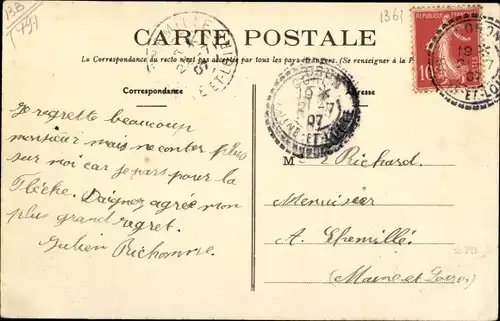 BB
T 491
1361
CARTE POSTALE
La Correspondance au recto n'est pas acceptée par tous les pays étrangers (Se renseigner à la Poste)
Correspondance
Adresse
RÉPUBLIQUE FRANÇAISE
10
19
2 -7
07
ET-LOIRE
MAINE-ET-LOIRE
Je regrette beaucoup
monsieur mais ne conter plus
sur moi car je pars pour la
Flèche. Daignez agrée mon
plus grand regret.
Julien Richomme
Mr Richard
Menuisier
A Chemillé
(Maine et Loire)